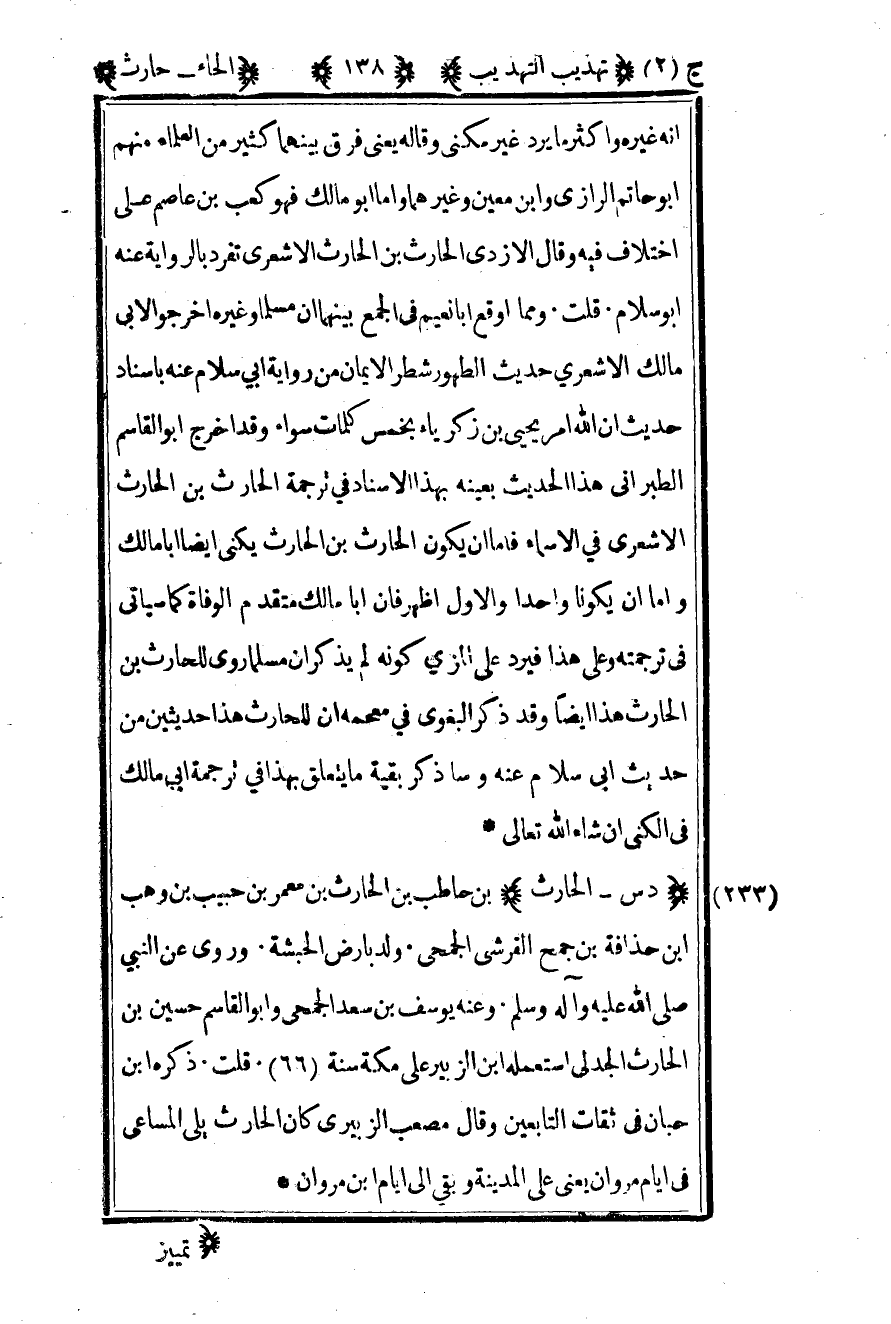 ج (٢) ﴿ تهذيب التهذيب ﴾ ﴿ ١٣٨ ﴾ ﴿ الحاء ـ حارث ﴾
انه غيره واكثر ما يرد غير مكنى وقاله يعنى فرق بينهما كثير من العلماء منهم
ابو حاتم الرازى وابن معين وغيرهما واما ابو مالك فهو كعب بن عاصم على
اختلاف فيه وقال الازدى الحارث بن الحارث الاشعرى تفرد بالرواية عنه
ابو سلام · قلت · ومما اوقع ابا نعيم فى الجمع بينهما ان مسلما وغيره اخرجوا لابى
مالك الاشعري حديث الطهور شطر الايمان من رواية ابي سلام عنه باسناد
حديث ان الله امر يحيى بن زكرياء بخمس كلمات سواء وقد اخرج ابو القاسم
الطبرانى هذا الحديث بعينه بهذا الاسناد في ترجمة الحارث بن الحارث
الاشعرى في الاسماء فاما ان يكون الحارث بن الحارث يكنى ايضا ابا مالك
واما ان يكونا واحدا والاول اظهر فان ابا مالك متقدم الوفاة كما سياتى
فى ترجمته وعلى هذا فيرد على المزي كونه لم يذكر ان مسلما روى للحارث بن
الحارث هذا ايضاً وقد ذكر البغوى في معجمه ان للحارث هذا حديثين من
حديث ابى سلام عنه وساذكر بقية ما يتعلق بهذا في ترجمة ابي مالك
فى الكنى ان شاء الله تعالى *
(٢٣٣) ﴿ د س ـ الحارث ﴾ بن حاطب بن الحارث بن معمر بن حبيب بن وهب
ابن حذافة بن جمح القرشى الجمحى · ولد بارض الحبشة · وروى عن النبي
صلى الله عليه وآله وسلم · وعنه يوسف بن سعد الجمحى وابو القاسم حسين بن
الحارث الجدلى استعمله ابن الزبير على مكة سنة (٦٦) · قلت · ذكره ابن
حبان فى ثقات التابعين وقال مصعب الزبيرى كان الحارث يلى المساعى
فى ايام مروان يعنى على المدينة وبقي الى ايام ابن مروان *
﴿ تمييز